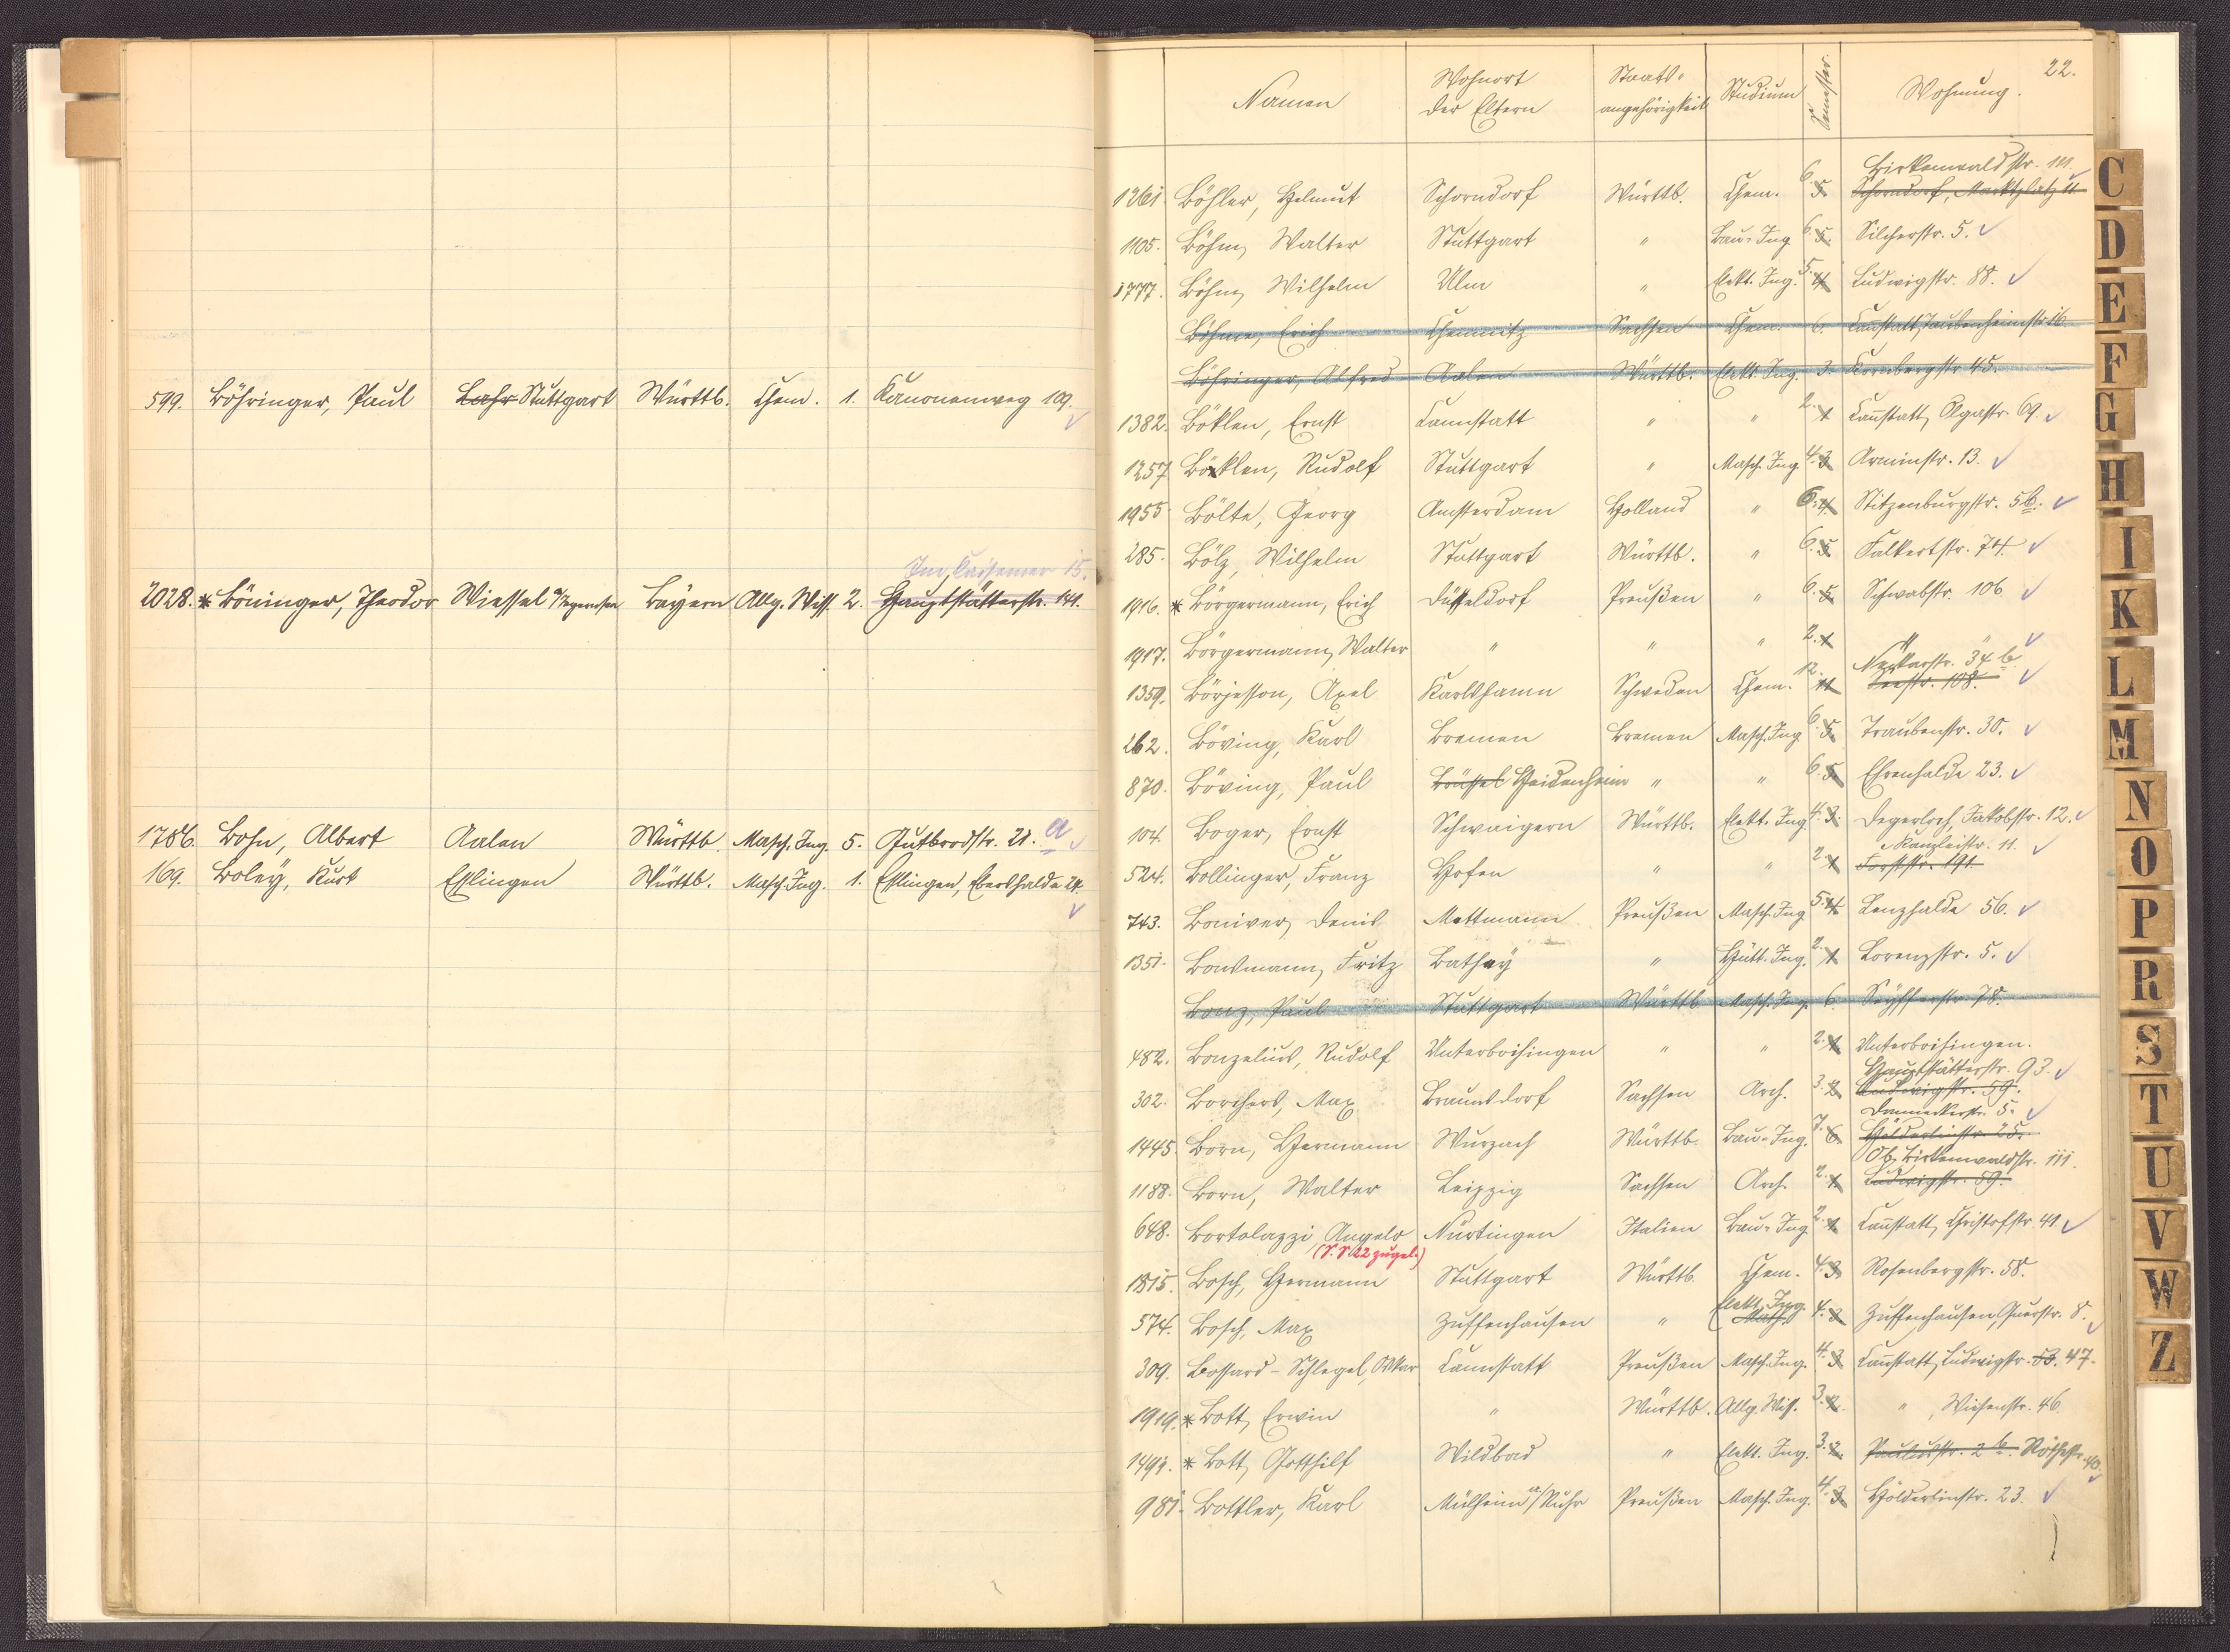 599. Böhringer, Paul Lahr Stuttgart Württb. Chem. 1. Kanonenweg 109.
Im Kaisemer 15.
2028. * Böninger, Theodor Wiessee a/Tegernsee Bayern Allg. Wiss. 2. Hauptstätterstr. 141.
1786. Bohn, Albert Aalen Württb. Masch. Ing. 5. Gutbrodstr. 21. a
169. Boley, Kurt Esslingen Württb. Masch. Ing. 1. Esslingen, Ebershalde 24.
22.
Namen Wohnort der Eltern Staats-angehörigkeit Studium Semester. Wohnung.
Birkenwaldstr. 111.
1261. Böhler, Helmut Schorndorf Württb. Chem. 6. 5. Schorndorf, Marktplatz 11
1105. Böhm, Walter Stuttgart " Bau-Ing. 6. 5. Silcherstr. 5.
1777. Böhm, Wilhelm Ulm " Elekt. Ing. 5. 4. Ludwigstr. 88.
Böhme, Erich Chemnitz Sachsen Chem. 6. Cannstatt, Taubenheimstr. 16
Böhringer, Alfred Aalen Württb. Elekt. Ing. 3. Kornbergstr. 45.
1382. Böklen, Ernst Cannstatt " " 2. 1. Cannstatt, Olgastr. 69.
1257. Böklen, Rudolf Stuttgart " Masch. Ing. 4. 3. Arminstr. 13.
1955. Bölte, Georg Amsterdam Holland " 6. 4. Stitzenburgstr. 5b.
285. Bölz, Wilhelm Stuttgart Württb. " 6. 5. Falkertstr. 74.
1916. * Börgermann, Erich Düsseldorf Preußen " 6. 5. Schwabstr. 106
1917. Börgermann, Walter " " " 2. 1. "
Neckarstr. 34 b
1359. Börjesson, Axel Karlshamn Schweden Chem. 12. 11. Seestr. 108.
262. Böving, Karl Bremen Bremen Masch. Ing. 6. 5. Traubenstr. 30.
870. Böving, Paul Brüssel Heidenheim " " 6. 5. Ehrenhalde 23.
104. Boger, Ernst Schwaigern Württb. Elekt. Ing. 4. 3. Degerloch, Jakobstr. 12.
Kanzleistr. 11.
524. Bollinger, Franz Hofen " " 2. 1. Forststr. 191.
743. Boniver, Denis Mettmann Preußen Masch. Ing. 5. 4. Lenzhalde 56.
1351. Bonsmann, Fritz Bathey " Hütt. Ing. 2. 1. Lorenzstr. 5.
Bonz, Paul Stuttgart Württb. Masch. Ing. 6. Seyfferstr. 78.
482. Bonzelius, Rudolf Unterboihingen " " 2. 1. Unterboihingen.
Hauptstätterstr. 93.
302. Borchers, Max Braunsdorf Sachsen Arch. 3. 2. Ludwigstr. 59.
Danneckerstr. 5.
1445. Born, Hermann Wurzach Württb. Bau-Ing. 7. 6. Hölderlinstr. 25.
Ob. Birkenwaldstr. 111.
1188. Born, Walter Leipzig Sachsen Arch. 2. 1. Ludwigstr. 59.
648. Bortolazzi Angelo Nürtingen Italien Bau-Ing. 2. 1. Cannstatt, Christofstr. 41.
1815. Bosch, Hermann Stuttgart Württb. Chem. 4. 3. Rosenbergstr. 58.
Elekt. Ing.
574. Bosch, Max Zuffenhausen " Math. 4. 3. Zuffenhausen, Querstr. 8.
309. Bossard-Schlegel, Oskar Cannstatt Preußen Masch. Ing. 4. 3. Cannstatt, Ludwigstr. 53. 47.
1919. * Bott, Erwin " Württb. Allg. Wiss. 3. 2. " , Wiesenstr. 46
1491. * Bott, Gotthilf Wildbad " Elekt. Ing. 3. 2. Paulusstr. 2 b Rötestr. 40.
981. Bottler, Karl Mülheim a/Ruhr Preußen Masch. Ing. 4. 3. Hölderlinstr. 23.
C
D
E
F
G
H
I
K
L
M
N
O
P
R
S
T
U
V
W
Z